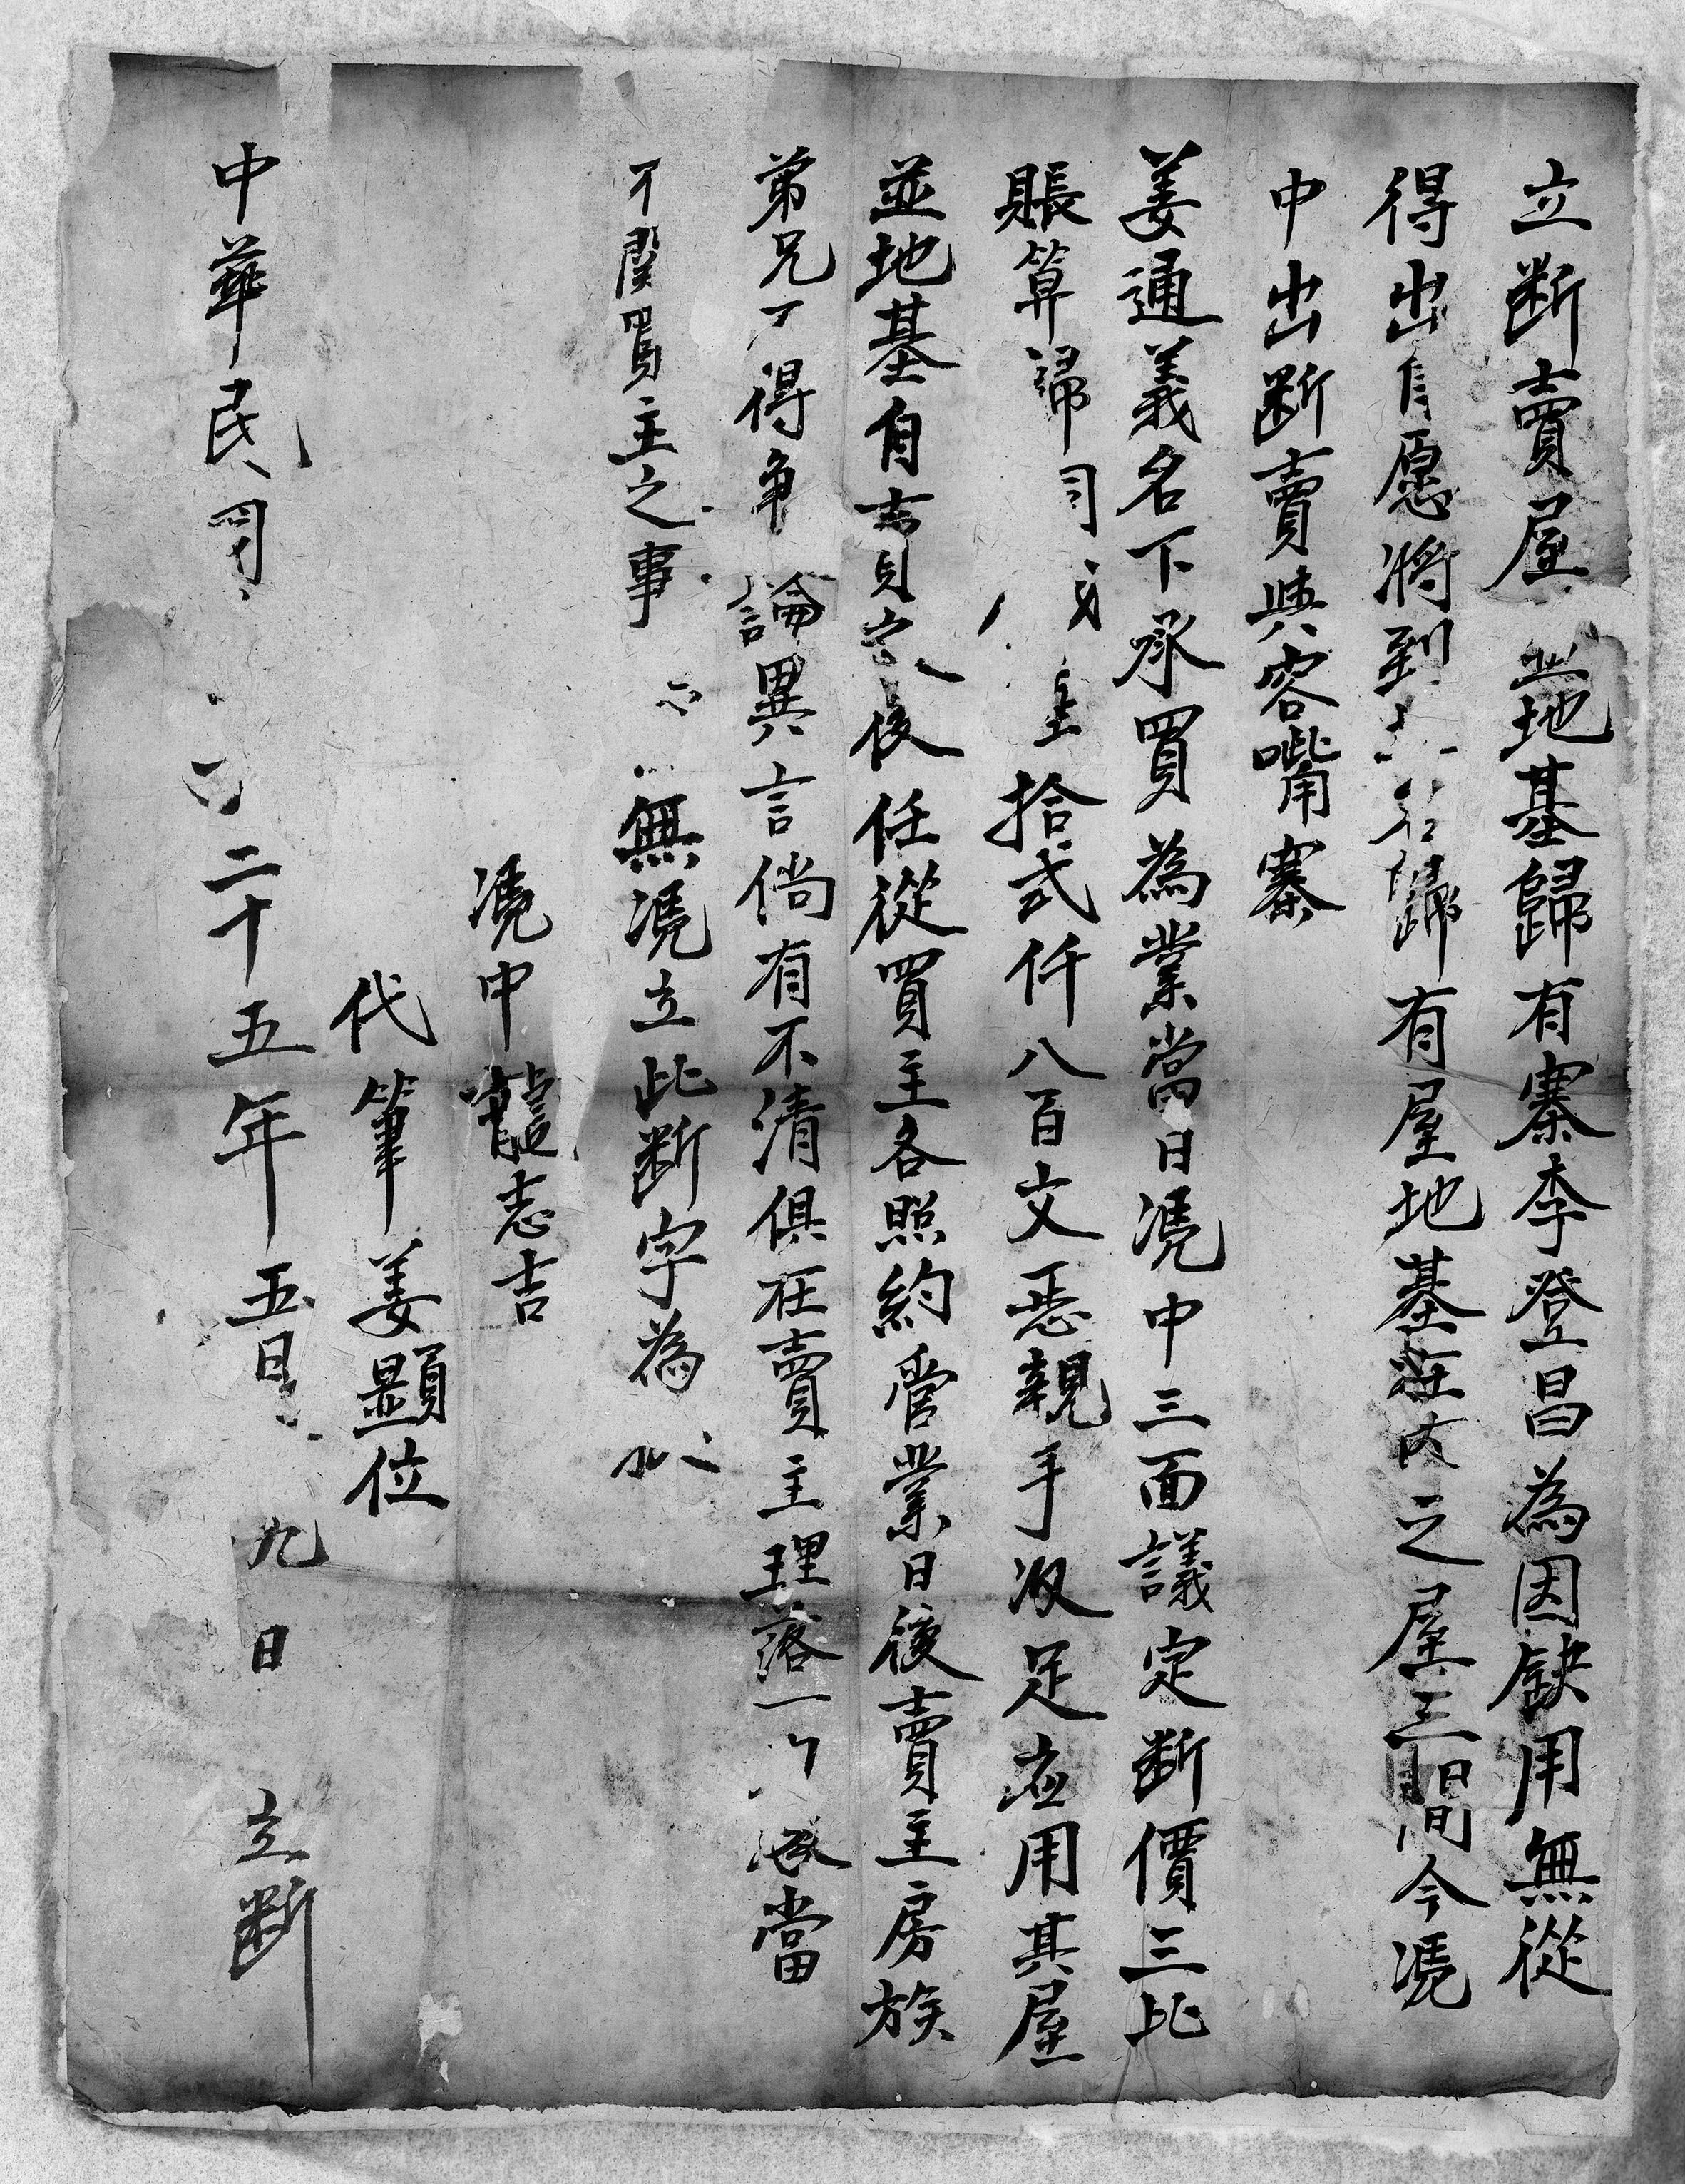 立断賣屋並地基歸有寨李登昌為因缺用無從
得出自愿將到名歸有屋地基在内之屋三間今憑
中出断賣與容嘴寨
姜通義名下承買為業當日憑中三面議定断價三比
賬算歸拾弍仟八百文恁親手收足應用其屋
並地基自賣之後任從買主各照約管業日後賣主房族
弟兄不得争論異言倘有不清俱在賣主理落一承當
不関買主之事無憑立此断字為
憑中龍志吉
代筆姜顯位
中華民國二十五年五月九日立断